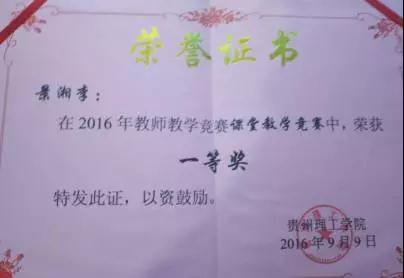 荣誉证书
景湘李：
在2016年教师教学竞赛课堂教学竞赛中，荣获
一等奖
特发此证，以资鼓励。
贵州理工学院
2016年9月9日